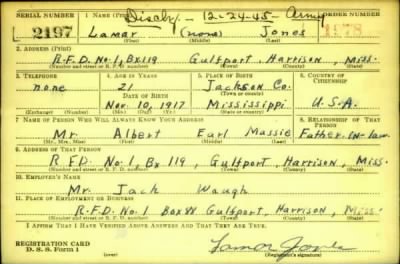 Dischg. - 12-24-45 - Army
SERIAL NUMBER 1. NAME (Print) ORDER NUMBER
2197 Lamar (none) Jones 1178
(First) (Middle) (Last)
2. ADDRESS (Print)
R.F.D. No. 1, Bx 119 Gulfport, Harrison, Miss.
(Number and street or R. F. D. number) (Town) (County) (State)
3. TELEPHONE 4. AGE IN YEARS 5. PLACE OF BIRTH 6. COUNTRY OF CITIZENSHIP
none 21 Jackson Co.
DATE OF BIRTH (Town or county)
Nov. 10, 1917 Mississippi U.S.A.
7. NAME OF PERSON WHO WILL ALWAYS KNOW YOUR ADDRESS 8. RELATIONSHIP OF THAT PERSON
Mr. Albert Earl Massie Father-in-law
(Mr., Mrs., Miss) (First) (Middle) (Last)
9. ADDRESS OF THAT PERSON
R FD. No. 1, Bx 119, Gulfport, Harrison, Miss.
(Number and street or R. F. D. number) (Town) (County) (State)
10. EMPLOYER'S NAME
Mr. Jack Waugh
11. PLACE OF EMPLOYMENT OR BUSINESS
R.F.D. No. 1 Box Gulfport, Harrison, Miss
(Number and street or R. F. D. number) (Town) (County) (State)
I AFFIRM THAT I HAVE VERIFIED ABOVE ANSWERS AND THAT THEY ARE TRUE.
REGISTRATION CARD
D. S. S. Form 1
Lamar Jones
(Registrant's signature)